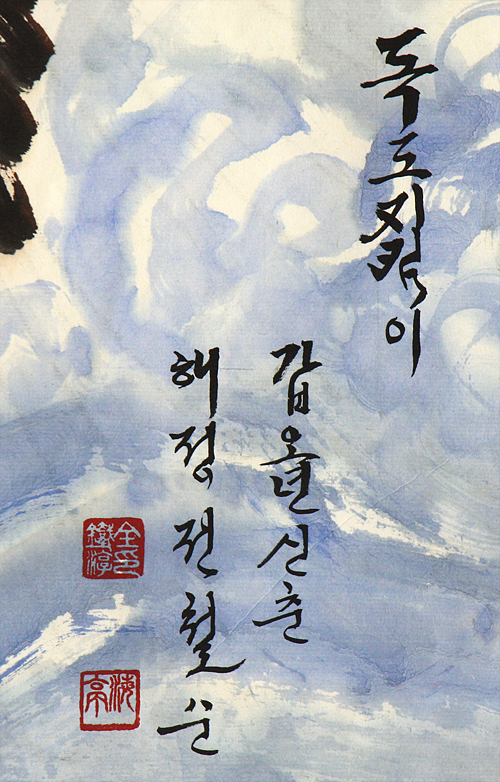 독도지킴이
갑오년 신춘
해정 전철순
全印
鐵淳
海亭